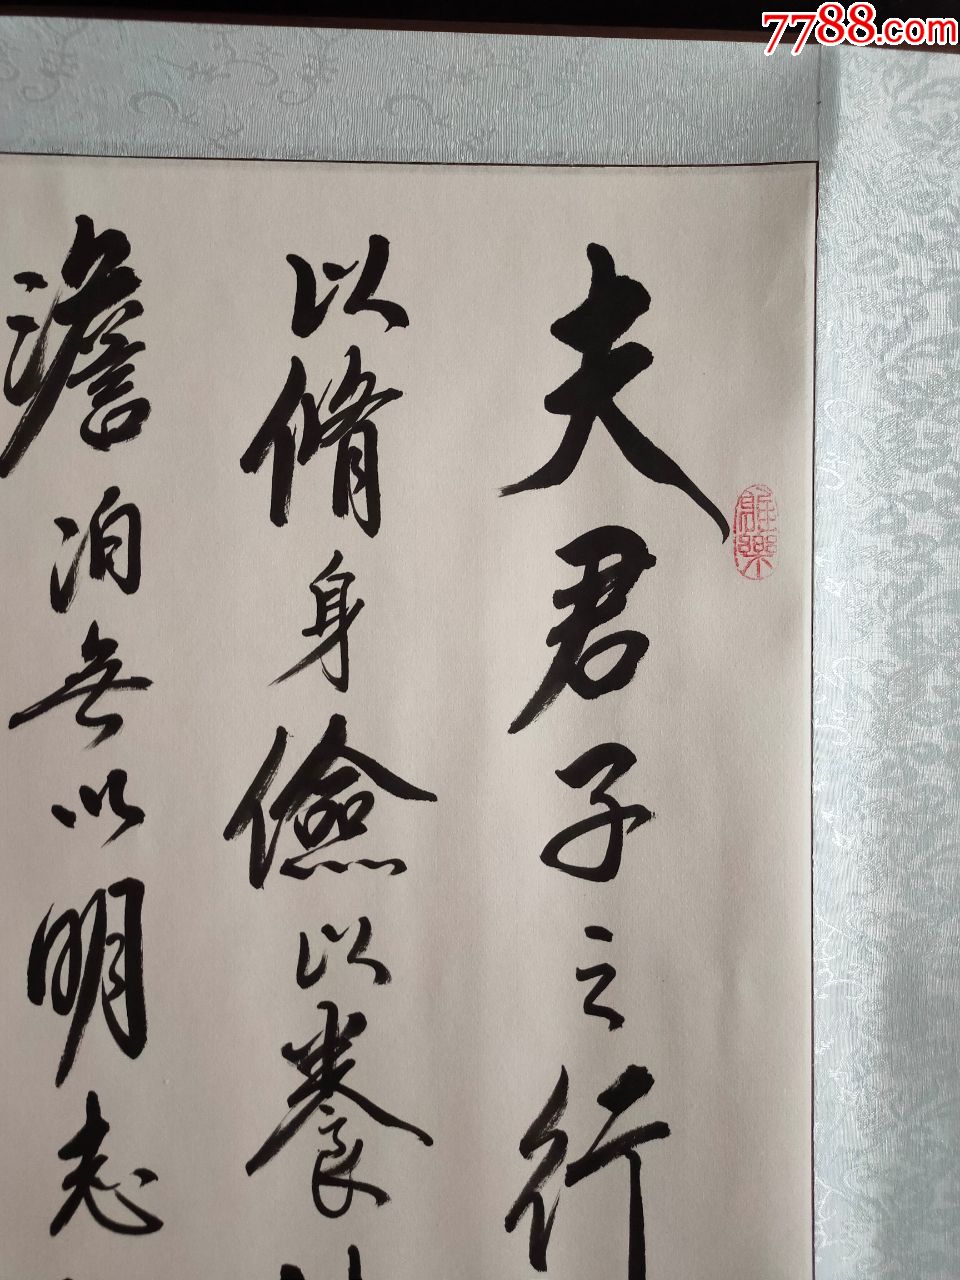 7788.com
夫君子之行
以脩身儉以養
澹泊無以明志